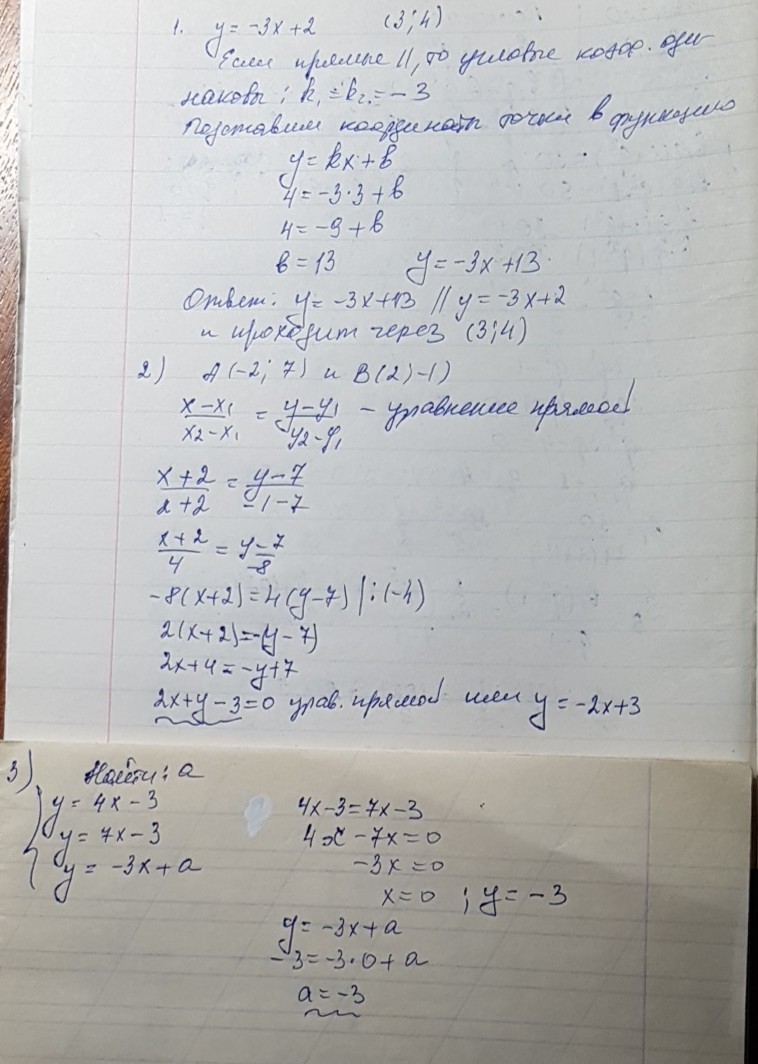 1. y = -3x+2 (3;4)
Если прямые ||, то угловые коэф. оди-
наковы: k₁ = k₂ = -3
Подставим координаты точки в функцию
y = kx + b
4 = -3·3 + b
4 = -9 + b
b = 13 y = -3x + 13
Ответ: y = -3x+13 // y = -3x+2
и проходит через (3;4)
2) A(-2; 7) и B(2;-1)
(x-x₁)/(x₂-x₁) = (y-y₁)/(y₂-y₁) - уравнение прямой
(x+2)/(2+2) = (y-7)/(-1-7)
(x+2)/4 = (y-7)/-8
-8(x+2)=4(y-7) |:(-4)
2(x+2)=-(y-7)
2x+4=-y+7
2x+y-3=0 урав. прямой или y = -2x+3
3) Найти: a
y = 4x-3 4x-3=7x-3
y = 7x-3 4x-7x=0
y = -3x+a -3x=0
x=0 ; y=-3
y=-3x+a
-3=-3·0+a
a=-3